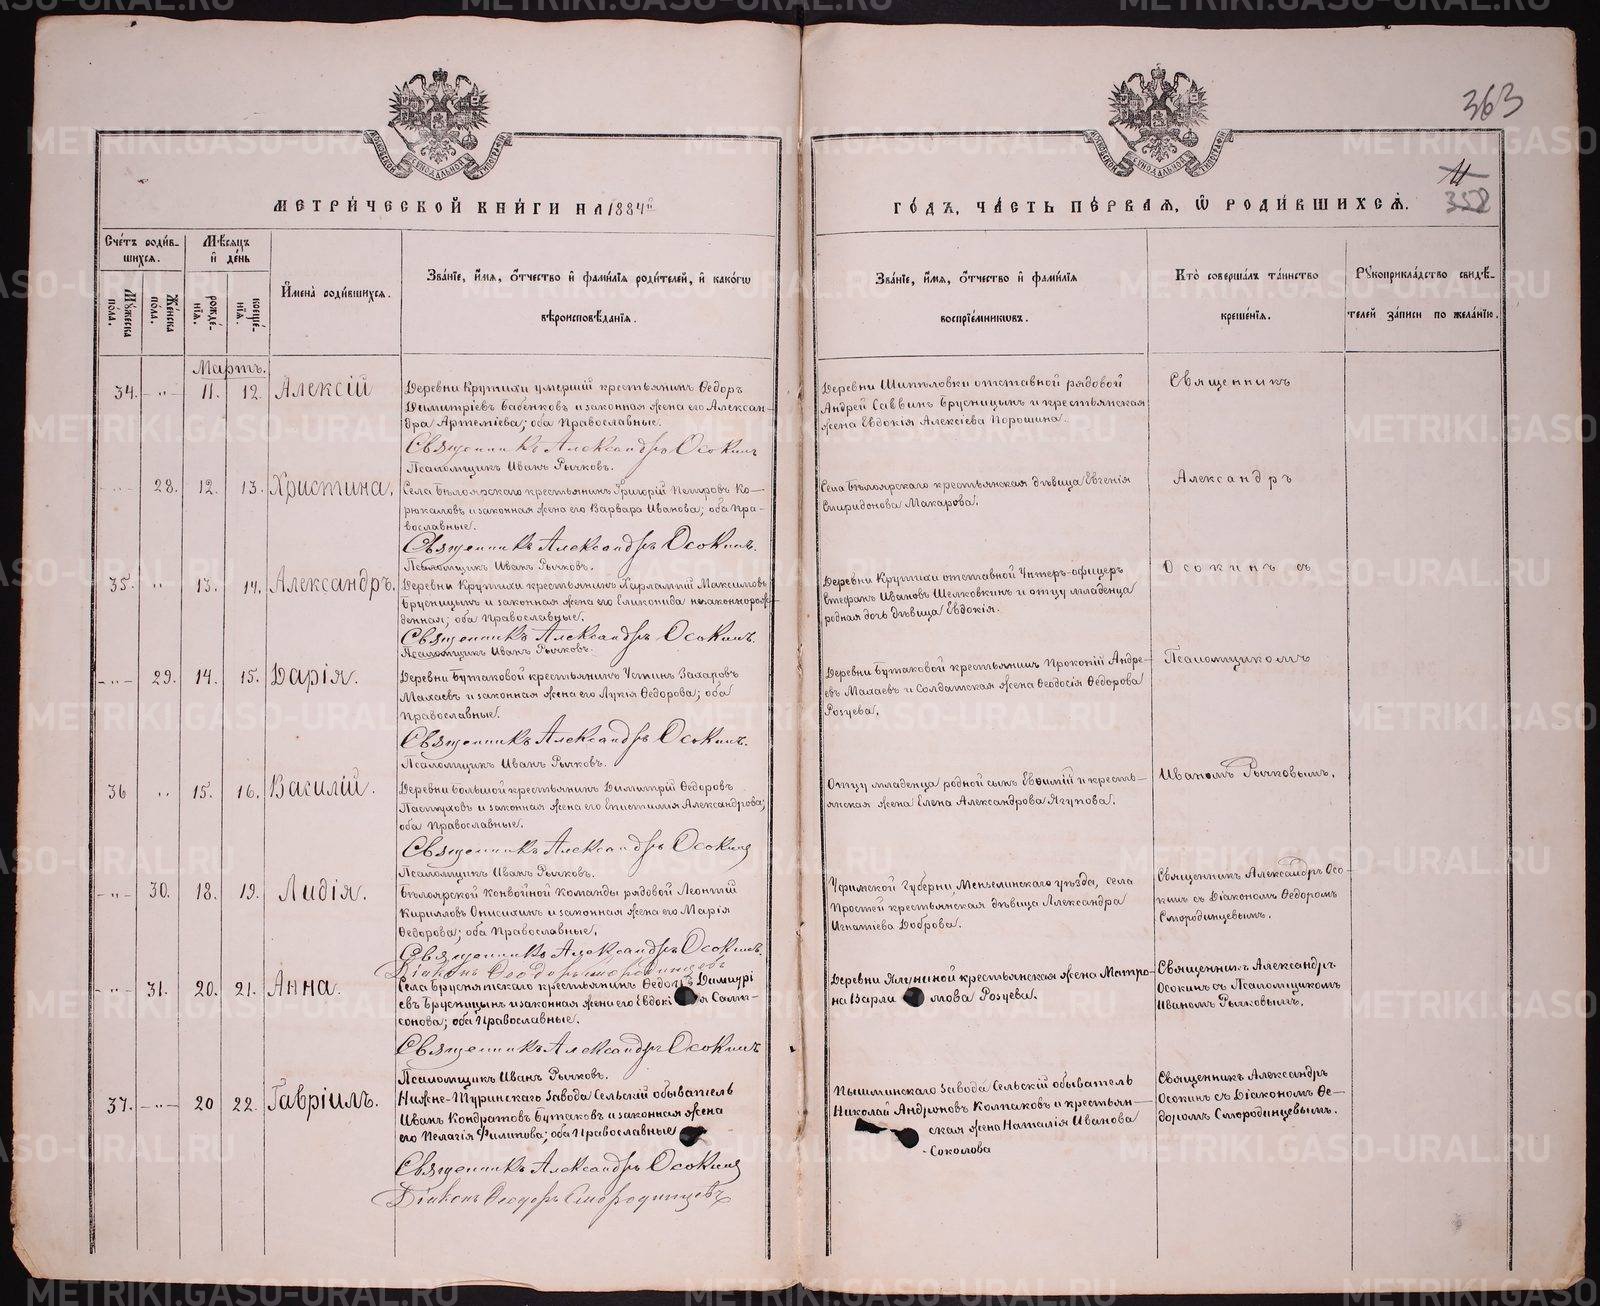 363
11
358
МОСКОВСКОЙ СѴНОДАЛЬНОЙ ТИПОГРАФІИ
МЕТРИ́ЧЕСКОЙ КНИ́ГИ НА 1884й
ГО́ДЪ, ЧА́СТЬ ПЕ́РВАЯ, Ѡ РОДИ́ВШИХСЯ.
Сче́тъ роди́в-
шихся.
Мꙋжеска по́ла.
Же́нска по́ла.
Мѣ́сяцъ и де́нь
рожде́нїѧ.
креще́нїѧ.
И҆мена̀ роди́вшихсѧ.
Зва́нїе, и҆́мѧ, ѻ҆́тчество и҆ фами́лїѧ роди́телей, и҆ како́гѡ
вѣроисповѣ́данїѧ.
Зва́нїе, и҆́мѧ, ѻ҆́тчество и҆ фами́лїѧ
воспрїе́мникѡвъ.
Кто̀ соверша́лъ та́инство
креще́нїѧ.
Рꙋкоприкла́дство свидѣ́-
телей за́писи по жела́нїю.
Мартъ.
34. -"- 11. 12. Алексій
Деревни Крутихи умершій крестьянинъ Ѳедоръ
Димитріевъ Бабенковъ и законная жена его Алексан-
дра Артеміева; оба Православные.
Священникъ Александръ Осокинъ
Псаломщикъ Иванъ Рычковъ.
Деревни Шипѣловки отставной рядовой
Андрей Саввинъ Брусницынъ и крестьянская
жена Евдокія Алексіева Порошина.
Священникъ
-"- 28. 12. 13. Христина.
Села Бѣлоярскаго крестьянинъ Григорій Петровъ Ко-
рюкаловъ и законная жена его Варвара Иванова; оба Пра-
вославные.
Священникъ Александръ Осокинъ.
Псаломщикъ Иванъ Рычковъ.
Села Бѣлоярскаго крестьянская дѣвица Евгенія
Спиридонова Макарова.
Александръ
35. " 13. 14. Александръ.
Деревни Крутихи крестьянинъ Харлампій Максимовъ
Брусницынъ и законная жена его Еликонида незаконнорож-
денная; оба Православные.
Священникъ Александръ Осокинъ.
Псаломщикъ Иванъ Рычковъ.
Деревни Крутихи отставной Унтеръ-офицеръ
Стефанъ Ивановъ Шелковкинъ и отцу младенца
родная дочь дѣвица Евдокія.
Осокинъ съ
-"- 29. 14. 15. Дарія.
Деревни Бутаковой крестьянинъ Устинъ Захаровъ
Махаевъ и законная жена его Лукія Ѳедорова; оба
Православные.
Священникъ Александръ Осокинъ.
Псаломщикъ Иванъ Рычковъ.
Деревни Бутаковой крестьянинъ Прокопій Андре-
евъ Махаевъ и Солдатская жена Ѳеодосія Ѳедорова
Розуева.
Псаломщикомъ
36 " 15. 16. Василій.
Деревни Большой крестьянинъ Димитрій Ѳедоровъ
Пастуховъ и законная жена его Епистимія Александрова;
оба Православные.
Священникъ Александръ Осокинъ
Псаломщикъ Иванъ Рычковъ.
Отцу младенца родной сынъ Евѳимій и кресть-
янская жена Елена Александрова Ягупова.
Иваномъ Рычковымъ.
-"- 30. 18. 19. Лидія.
Бѣлоярской Конвойной Команды рядовой Леонтій
Кирилловъ Онисихинъ и законная жена его Марія
Ѳедорова; оба Православные.
Священникъ Александръ Осокинъ.
Діаконъ Ѳеодоръ Смородинцевъ
Уфимской Губерни, Мензелинскаго уѣзда, села
Простей крестьянская дѣвица Александра
Игнатіева Доброва.
Священникъ Александръ Осо-
кинъ съ Діакономъ Ѳедоромъ
Смородинцевымъ.
-"- 31. 20. 21. Анна.
Села Бруснятскаго крестьянинъ Ѳедоръ Димитрі
евъ Брусницынъ и законная жена его Евдокія Сам-
сонова; оба Православные.
Священникъ Александръ Осокинъ
Псаломщикъ Иванъ Рычковъ.
Деревни Ялуниной крестьянская жена Матро-
на Варламова Розуева.
Священникъ Александръ
Осокинъ съ Псаломщикомъ
Иваномъ Рычковымъ.
37. -"- 20 22. Гавріилъ.
Нижне-Туринскаго Завода Сельскій обыватель
Иванъ Кондратовъ Бутаковъ и законная жена
его Пелагія Филипова; оба Православные
Священникъ Александръ Осокинъ
Діаконъ Ѳеодоръ Смородинцевъ
Пышминскаго Завода Сельскій обыватель
Николай Андроновъ Колпаковъ и крестьян-
ская жена Наталія Иванова
Соколова
Священникъ Александръ
Осокинъ съ Діакономъ Ѳе-
доромъ Смородинцевымъ.
METRIKI.GASO-URAL.RU